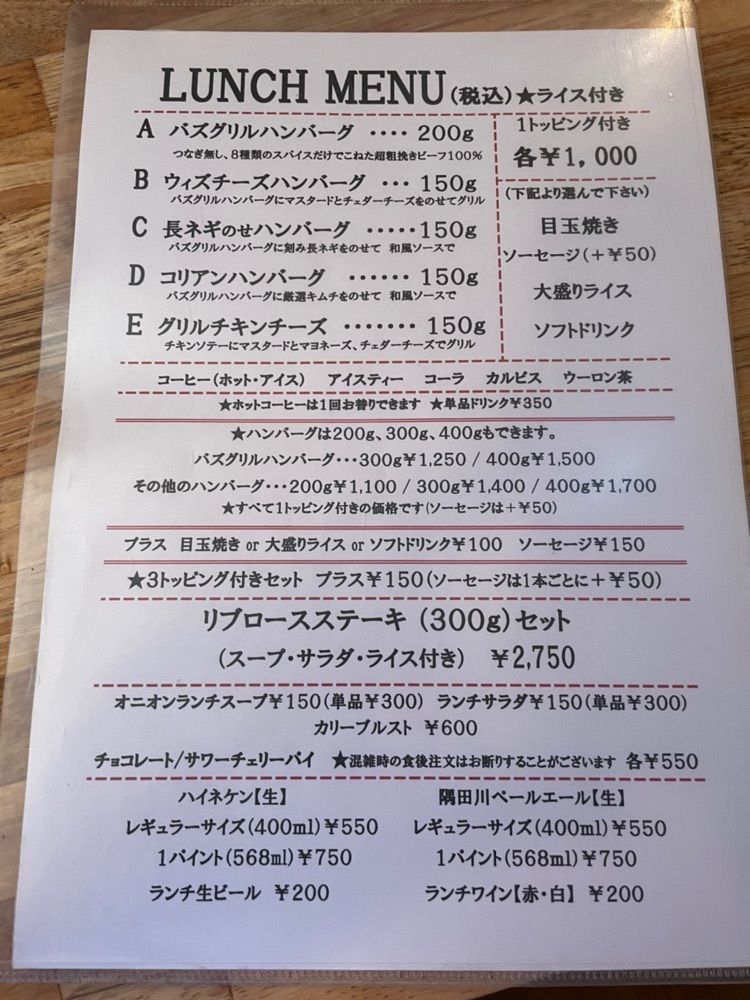 LUNCH MENU(税込)★ライス付き
A バズグリルハンバーグ ‥‥ 200g
つなぎ無し、8種類のスパイスだけでこねた超粗挽きビーフ100%
B ウィズチーズハンバーグ ‥‥ 150g
バズグリルハンバーグにマスタードとチェダーチーズをのせてグリル
C 長ネギのせハンバーグ ‥‥‥150g
バズグリルハンバーグに刻み長ネギをのせて 和風ソースで
D コリアンハンバーグ ‥‥‥ 150g
バズグリルハンバーグに厳選キムチをのせて 和風ソースで
E グリルチキンチーズ ‥‥‥‥ 150g
チキンソテーにマスタードとマヨネーズ、チェダーチーズでグリル
1トッピング付き
各¥1,000
(下記より選んで下さい)
目玉焼き
ソーセージ(+¥50)
大盛りライス
ソフトドリンク
コーヒー(ホット・アイス) アイスティー コーラ カルピス ウーロン茶
★ホットコーヒーは1回お替りできます ★単品ドリンク¥350
★ハンバーグは200g、300g、400gもできます。
バズグリルハンバーグ・・・300g¥1,250 / 400g¥1,500
その他のハンバーグ・・・200g¥1,100 / 300g¥1,400 / 400g¥1,700
★すべて1トッピング付きの価格です(ソーセージは+¥50)
プラス 目玉焼き or 大盛りライス or ソフトドリンク¥100 ソーセージ¥150
★3トッピング付きセット プラス¥150(ソーセージは1本ごとに+¥50)
リブロースステーキ (300g)セット
(スープ・サラダ・ライス付き) ¥2,750
オニオンランチスープ¥150(単品¥300) ランチサラダ¥150(単品¥300)
カリーブルスト ¥600
チョコレート/サワーチェリーパイ ★混雑時の食後注文はお断りすることがございます 各¥550
ハイネケン【生】
レギュラーサイズ(400ml)¥550
1パイント(568ml)¥750
ランチ生ビール ¥200
隅田川ペールエール【生】
レギュラーサイズ(400ml)¥550
1パイント(568ml)¥750
ランチワイン【赤・白】 ¥200